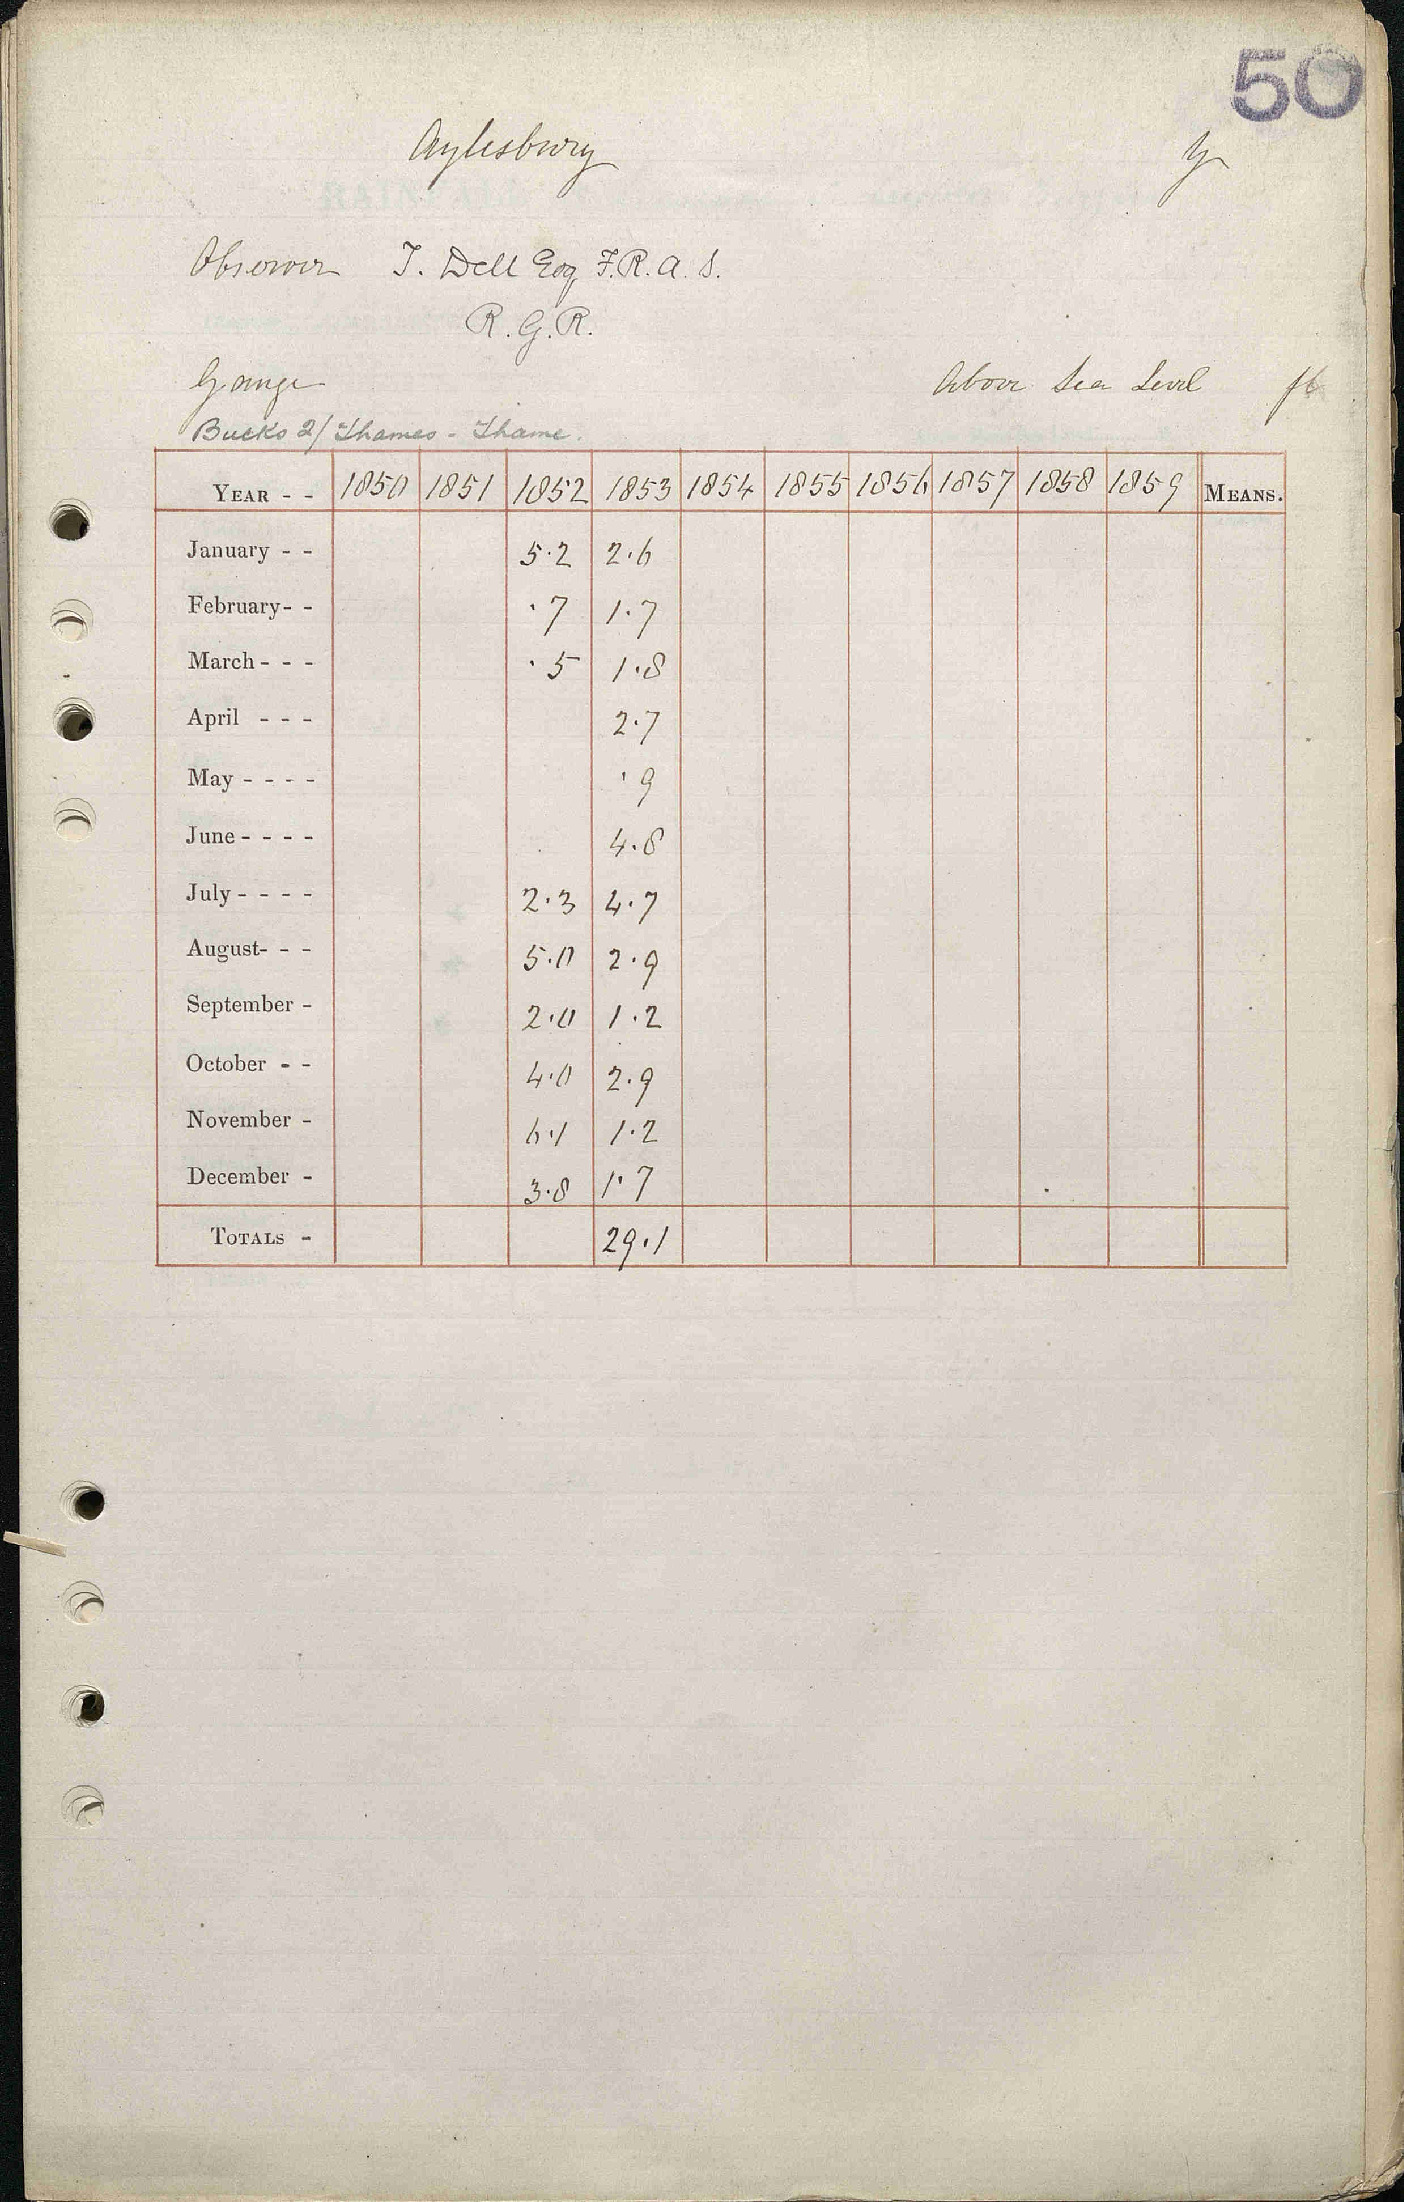 50
Aylesbury
Observer T. Dell Esq F.R.A.S.
R.G.R.
Gauge Above Sea Level ft
Bucks 2/ Thames - Thame.
YEAR - - 1850 1851 1852 1853 1854 1855 1856 1857 1858 1859 MEANS.
January - - 5.2 2.6
February - - .7 1.7
March - - - .5 1.8
April - - - 2.7
May - - - - .9
June - - - - 4.8
July - - - - 2.3 4.7
August - - - 5.0 2.9
September - 2.0 1.2
October - - 4.0 2.9
November - 6.1 1.2
December - 3.8 1.7
TOTALS - 29.1